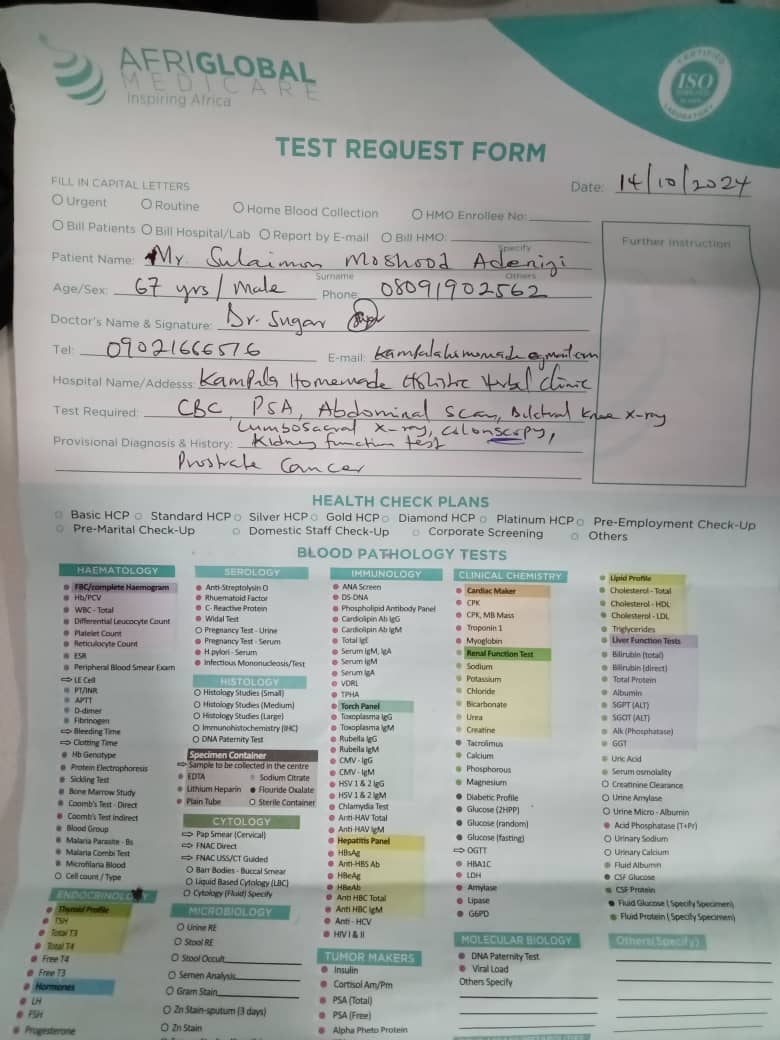 AFRIGLOBAL
MEDICARE
Inspiring Africa
CERTIFIED
ISO
LABORATORY
TEST REQUEST FORM
FILL IN CAPITAL LETTERS
Date: 14/10/2024
Urgent Routine Home Blood Collection HMO Enrollee No:
Bill Patients Bill Hospital/Lab Report by E-mail Bill HMO:
Specify
Further instruction
Patient Name: Mr. Sulaimon Moshood Adeniji
Surname Others
Age/Sex: 67 yrs/Male Phone: 08091902562
Doctor's Name & Signature: Dr. Sugar
Tel: 09021666576 E-mail:
Hospital Name/Addesss: Kampala Homemade Holistic Herbal Clinic
Test Required: CBC, PSA, Abdominal Scan, Bilateral Knee X-ray
Lumbosacral X-ray, Colonscopy,
Provisional Diagnosis & History: Kidney function test
Prostrate Cancer
HEALTH CHECK PLANS
Basic HCP Standard HCP Silver HCP Gold HCP Diamond HCP Platinum HCP Pre-Employment Check-Up
Pre-Marital Check-Up Domestic Staff Check-Up Corporate Screening Others
BLOOD PATHOLOGY TESTS
HAEMATOLOGY
FBC/complete Haemogram
Hb/PCV
WBC - Total
Differential Leucocyte Count
Platelet Count
Reticulocyte Count
ESR
Peripheral Blood Smear Exam
LE Cell
PT/INR
APTT
D-dimer
Fibrinogen
Bleeding Time
Clotting Time
Hb Genotype
Protein Electrophoresis
Sickling Test
Bone Marrow Study
Coomb's Test - Direct
Coomb's Test Indirect
Blood Group
Malaria Parasite - Bs
Malaria Combi Test
Microfilaria Blood
Cell count / Type
ENDOCRINOLOGY
Thyroid Profile
TSH
Total T3
Total T4
Free T4
Free T3
Hormones
LH
FSH
Progesterone
SEROLOGY
Anti-Streptolysin O
Rhuematoid Factor
C- Reactive Protein
Widal Test
Pregnancy Test - Urine
Pregnancy Test - Serum
H.pylori - Serum
Infectious Mononucleosis/Test
HISTOLOGY
Histology Studies (Small)
Histology Studies (Medium)
Histology Studies (Large)
Immunohistochemistry (IHC)
DNA Paternity Test
Specimen Container
Sample to be collected in the centre
EDTA Sodium Citrate
Lithium Heparin Flouride Oxalate
Plain Tube Sterile Container
CYTOLOGY
Pap Smear (Cervical)
FNAC Direct
FNAC USS/CT Guided
Barr Bodies - Buccal Smear
Liquid Based Cytology (LBC)
Cytology (Fluid) Specify
MICROBIOLOGY
Urine RE
Stool RE
Stool Occult
Semen Analysis
Gram Stain
Zn Stain-sputum (3 days)
Zn Stain
IMMUNOLOGY
ANA Screen
DS-DNA
Phospholipid Antibody Panel
Cardiolipin Ab IgG
Cardiolipin Ab IgM
Total IgE
Serum IgM, IgA
Serum IgM
Serum IgA
VDRL
TPHA
Torch Panel
Toxoplasma IgG
Toxoplasma IgM
Rubella IgG
Rubella IgM
CMV - IgG
CMV - IgM
HSV 1 & 2 IgG
HSV 1 & 2 IgM
Chlamydia Test
Anti-HAV Total
Anti-HAV IgM
Hepatitis Panel
HBsAg
Anti-HBS Ab
HBeAg
HBeAb
Anti HBC Total
Anti HBC IgM
Anti - HCV
HIV I & II
TUMOR MAKERS
Insulin
Cortisol Am/Pm
PSA (Total)
PSA (Free)
Alpha Pheto Protein
CLINICAL CHEMISTRY
Cardiac Maker
CPK
CPK, MB Mass
Troponin 1
Myoglobin
Renal Function Test
Sodium
Potassium
Chloride
Bicarbonate
Urea
Creatine
Tacrolimus
Calcium
Phosphorous
Magnesium
Diabetic Profile
Glucose (2HPP)
Glucose (random)
Glucose (fasting)
OGTT
HBA1C
LDH
Amylase
Lipase
G6PD
MOLECULAR BIOLOGY
DNA Paternity Test
Viral Load
Others Specify
Lipid Profile
Cholesterol - Total
Cholesterol - HDL
Cholesterol - LDL
Triglycerides
Liver Function Tests
Bilirubin (total)
Bilirubin (direct)
Total Protein
Albumin
SGPT (ALT)
SGOT (ALT)
Alk (Phosphatase)
GGT
Uric Acid
Serum osmolality
Creatinine Clearance
Urine Amylase
Urine Micro - Albumin
Acid Phosphatase (T+Pr)
Urinary Sodium
Urinary Calcium
Fluid Albumin
CSF Glucose
CSF Protein
Fluid Glucose (Specify Specimen)
Fluid Protein (Specify Specimen)
Others(Specify)